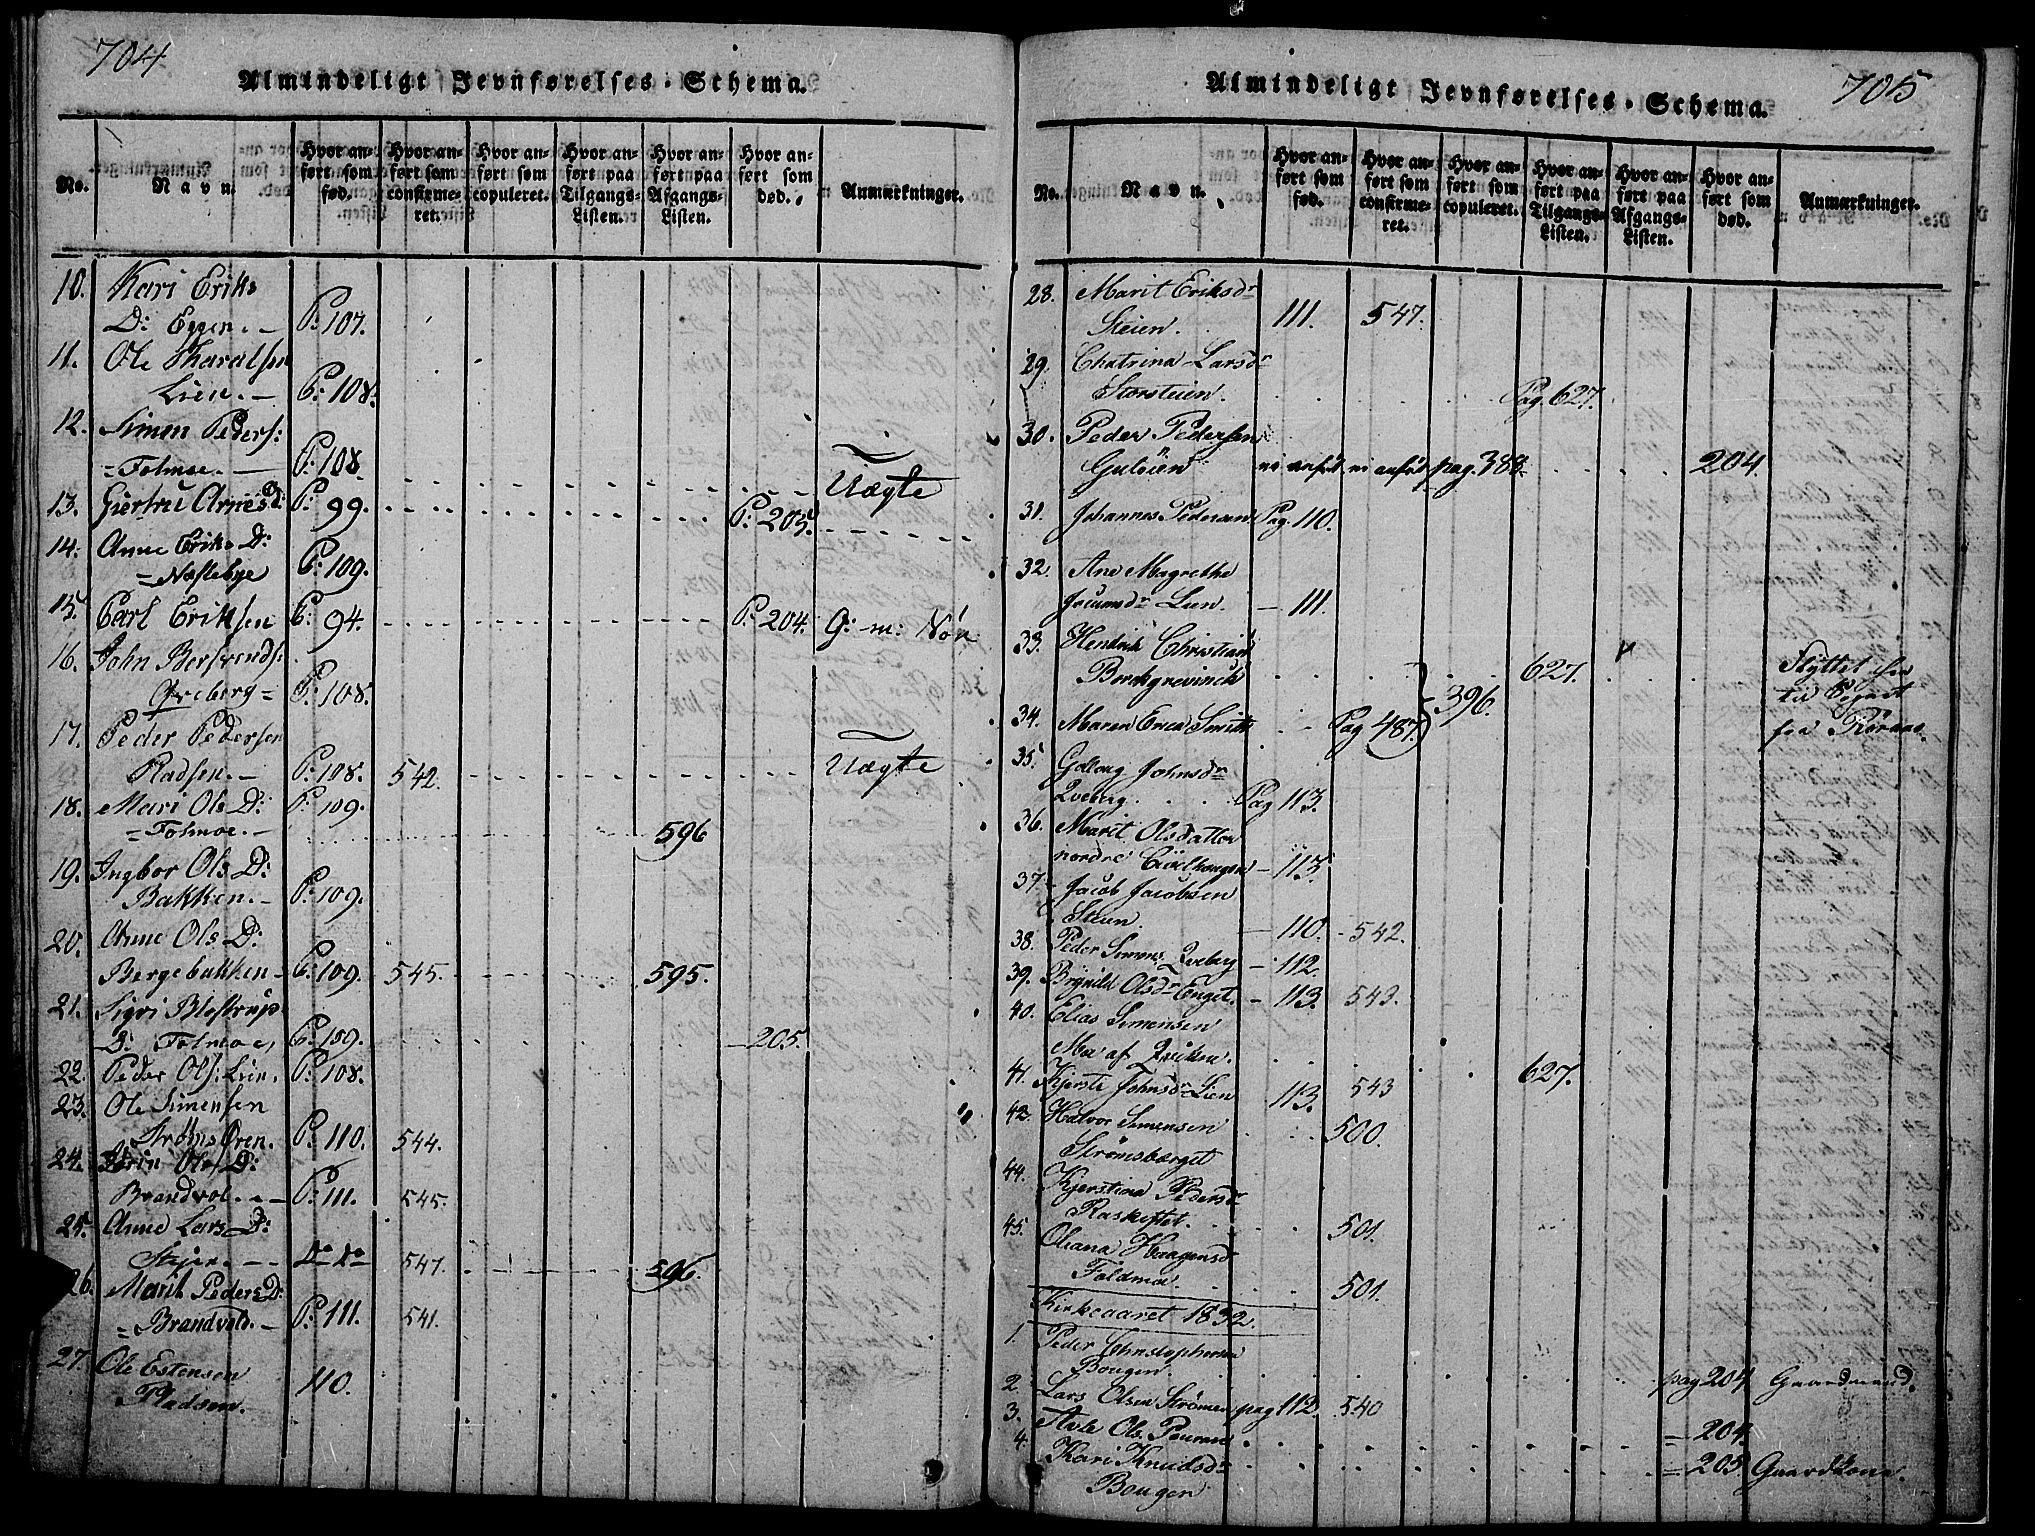 704
Almindeligt Jevnførelses-Schema.
No. Navn. Hvor anført som fød. Hvor anført som confirmeret. Hvor anført som copuleret. Hvor anført paa Tilgangs-Listen. Hvor anført paa Afgangs-Listen. Hvor anført som død. Anmærkninger.
10. Kari Eriks
D: Eggen. P: 107.
11. Ole Haralsen
Lien. P: 108.
12. Simon Peders:
Folmoe. P: 108. Uægte
13. Giertru Arnes D: P: 99. P: 205.
14. Anne Eriks D:
Næstebye P: 109.
15. Carl Eriksen P: 94. P: 204. G: m: Søn
16. John Bersvends:
Qveberg P: 108.
17. Peder Pedersen
Pladsen. P: 108. 542. Uægte
18. Mari Ols D: P: 109.
Folmoe. 596
19. Ingbor Ols D:
Bakken. P: 109.
20. Anne Ols D:
Bergebakken P: 109. 545. 595.
21. Sigri Blestrup
D: Folmoe, P: 109. 205.
22. Peder Ols: Lien. P: 108.
23. Ole Simensen
Strøms Øren. P: 110. 544.
24. Ols D:
Brandvol. P: 111. 545.
25. Anne Lars D:
Stejen. Do Do 547. 596.
26. Marit Peders D:
Brandvold. P: 111. 541.
27. Ole Estensen
Pladsen. 110.
705
Almindeligt Jevnførelses-Schema.
No. Navn. Hvor anført som fød. Hvor anført som confirmeret. Hvor anført som copuleret. Hvor anført paa Tilgangs-Listen. Hvor anført paa Afgangs-Listen. Hvor anført som død. Anmærkninger.
28. Marit Eriksdr
Steien. 111. 547.
29. Chatrina Larsdr
Storsteien. Pag. 627.
30. Peder Pedersen
Guløien pag. 388. 204.
31. Johannes Pedersen Pag. 110.
32. Ane Magrethe
Lien. 111.
33. Hendrik Christian
Borchgrevinck 396. 627. Flyttet
34. Maren Erica Smith Pag 487. fra Røraas.
35. Golloug Johnsdr
Qveberg. Pag 113.
36. Marit Olsdatter
nordre 113.
37. Jacob Jacobsen
Steien. 110. 542.
38. Peder Simens. Qveberg 112.
39. Brynild Olsdr Enget. 113. 543.
40. Elias Simensen
Moe af Qvikne. 627.
41. Kjersti Johnsdr Lien 113. 543
42. Halvor Simensen 500.
Strømsbærget
44. Kjerstina Pedersdr
Raskiftet. 501.
45. Oliana Haagensd
Foldmoe 501.
Kirkeaaret 1832.
1. Peder Christophersen
Bougen. pag 204 Gaardmand.
2. Lars Olsen Strømen pag 112. 540
3. Ols. 204.
4. Kari Knudsdr 205. Gaardkone.
Bougen